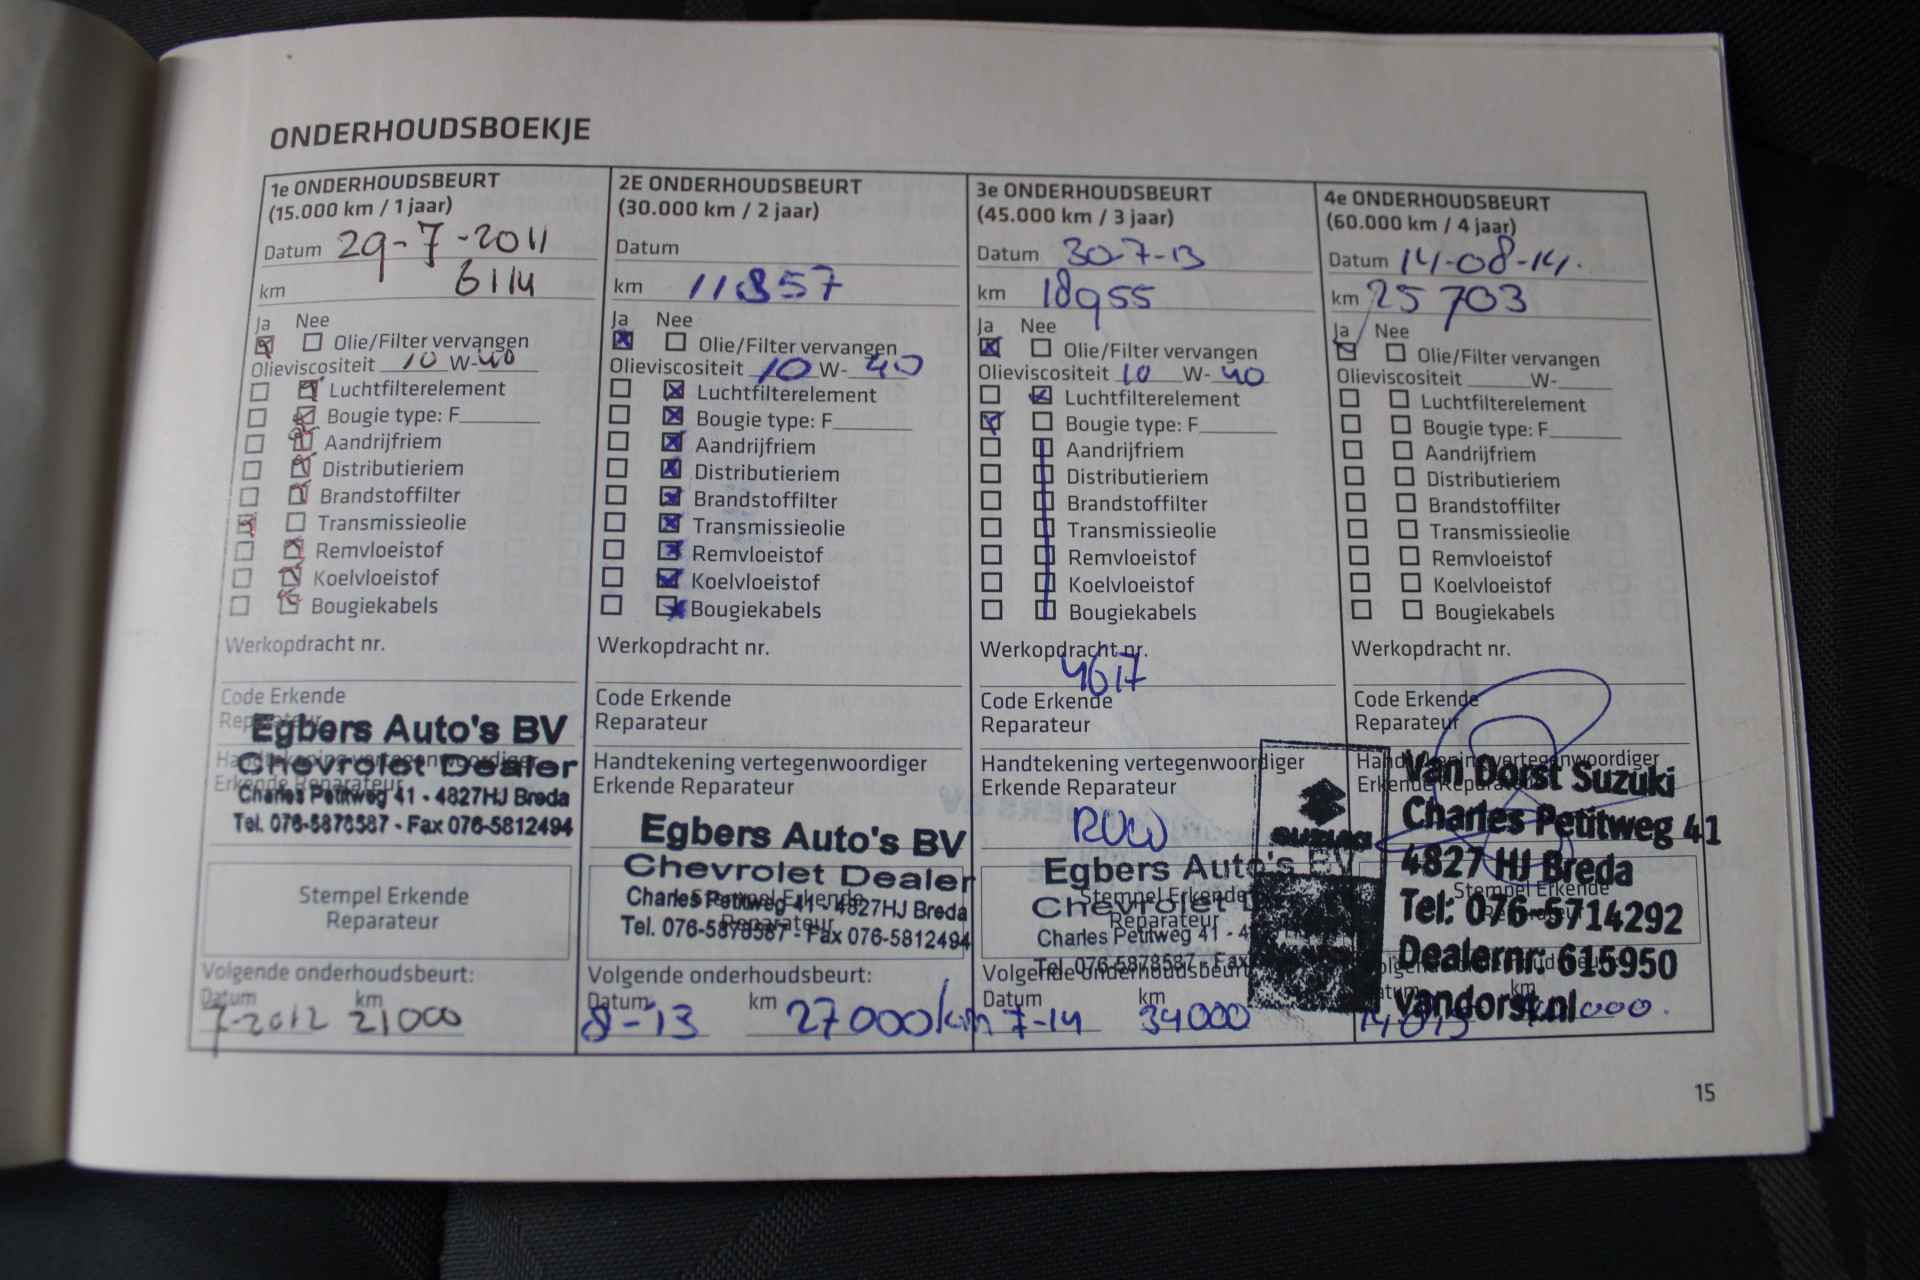 ONDERHOUDSBOEKJE
1e ONDERHOUDSBEURT
(15.000 km / 1 jaar)
Datum 29-7-2011
km 6114
Ja Nee
Olie/Filter vervangen
Olieviscositeit 10 W-40
Luchtfilterelement
Bougie type: F
Aandrijfriem
Distributieriem
Brandstoffilter
Transmissieolie
Remvloeistof
Koelvloeistof
Bougiekabels
Werkopdracht nr.
Code Erkende
Reparateur
Egbers Auto's BV
Handtekening vertegenwoordiger
Chevrolet Dealer
Erkende Reparateur
Charles Petitweg 41 - 4827HJ Breda
Tel. 076-5878587 - Fax 076-5812494
Stempel Erkende
Reparateur
Volgende onderhoudsbeurt:
Datum km
7-2012 21000
2E ONDERHOUDSBEURT
(30.000 km / 2 jaar)
Datum
km 11857
Ja Nee
Olie/Filter vervangen
Olieviscositeit 10 W-40
Luchtfilterelement
Bougie type: F
Aandrijfriem
Distributieriem
Brandstoffilter
Transmissieolie
Remvloeistof
Koelvloeistof
Bougiekabels
Werkopdracht nr.
Code Erkende
Reparateur
Handtekening vertegenwoordiger
Erkende Reparateur
Egbers Auto's BV
Chevrolet Dealer
Charles Petitweg 41 - 4827HJ Breda
Stempel Erkende
Reparateur
Tel. 076-5878587 - Fax 076-5812494
Volgende onderhoudsbeurt:
Datum km
8-13 27000km
3e ONDERHOUDSBEURT
(45.000 km / 3 jaar)
Datum 30-7-13
km 18955
Ja Nee
Olie/Filter vervangen
Olieviscositeit 10 W-40
Luchtfilterelement
Bougie type: F
Aandrijfriem
Distributieriem
Brandstoffilter
Transmissieolie
Remvloeistof
Koelvloeistof
Bougiekabels
Werkopdracht nr.
4617
Code Erkende
Reparateur
Handtekening vertegenwoordiger
Erkende Reparateur
Egbers Auto's BV
Stempel Erkende
Chevrolet
Reparateur
Charles Petitweg 41 -
Tel. 076-5878587 - Fax
Volgende onderhoudsbeurt
Datum km
7-14 34000
4e ONDERHOUDSBEURT
(60.000 km / 4 jaar)
Datum 14-08-14.
km 25703
Ja Nee
Olie/Filter vervangen
Olieviscositeit W-
Luchtfilterelement
Bougie type: F
Aandrijfriem
Distributieriem
Brandstoffilter
Transmissieolie
Remvloeistof
Koelvloeistof
Bougiekabels
Werkopdracht nr.
Code Erkende
Reparateur
Handtekening vertegenwoordiger
Erkende Reparateur
SUZUKI
Van Dorst Suzuki
Charles Petitweg 41
4827 HJ Breda
Stempel Erkende
Tel: 076-5714292
Dealernr: 615950
vandorst.nl
km
15